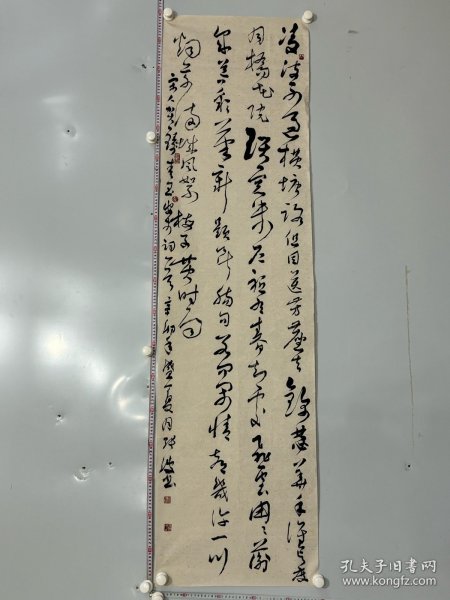 凌波不过横塘路但目送芳尘去锦瑟華年谁与度
月橋花院琐窗朱户只有春知处飞云冉冉蘅
皋暮彩笔新题断肠句若问闲情都几许一川
烟草满城风絮梅子黄时雨
宋人贺铸青玉案词一首辛卯年盛夏周
孔夫子旧书网
www.kongfz.com